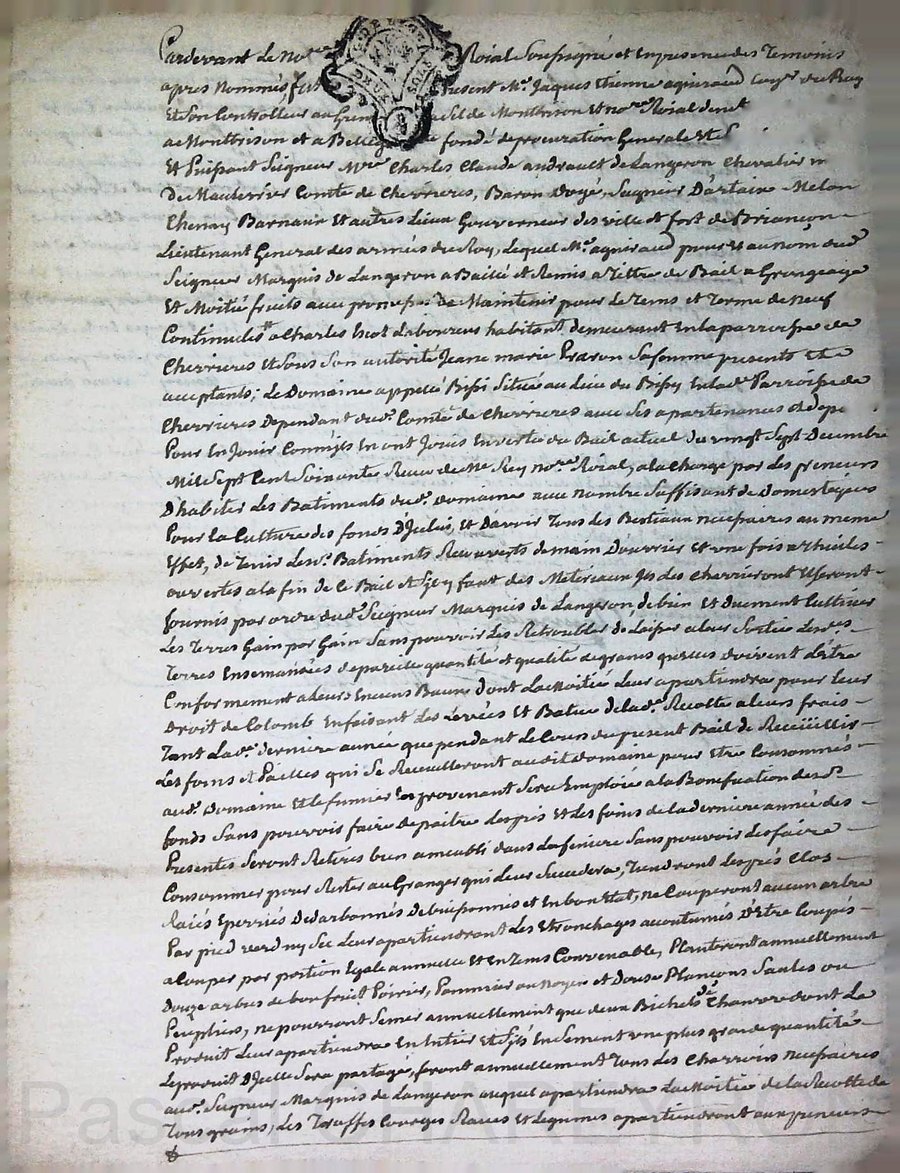 Pardevant Le Not.re Roial Soussigné et en presence des Temoins
apres Nommés fut present M.e Jacques Etienne agniraud Con.er du Roy
Et Son Controlleur au Gren Sel de Montbrison Et no.re Roial de
a Montbrison et a Belleg fondé de procuration Generale
Et Puissant Seigneur M.re Charles Claude andrault de Langeron Chevalier
De Maulevrier Comte de Cherrieres, Baron Doyé, Seigneur D'artaise Melan
Chenay Barnaux Et autres Lieux Gouverneur des ville et fort de Briançon
Lieutenant General des armées du Roy, Lequel M.e agniraud pour et au nom dud.
Seigneur Marquis de Langeron a Baillé et Remis a Tittre de Bail a Grangeage
Et Moitié fruits avec promesse de Maintenir pour Le Tems et Terme de Neuf
Continuels a Charles Laboureur habitant demeurant en la parroisse de
Cherrieres Et Sous Son autorité Jeane marie Praron Sa femme presents et
acceptants; Le Domaine appellé Bissi Situé au Lieu du Bissy en lad.e Parroisse de
Cherrieres Dependant dud. Comté de Cherrieres avec Ses apartenances et depe
Pour En Jouir Comme ils En ont Jouis En vertu du Bail actuel du vingt Sept Decembre
Mil Sept Cent Soixante Receu de Me Rey no.re Roial, a la Charge par Les preneurs
D'habiter Les Batiments dud. Domaine avec nombre Suffisant de Domestiques
Pour la Culture des fonds D'Jcelui, et D'avoir Tous Les Bestiaux necessaires au meme
Effet, de Tenir Les d. Batiments Recouverts de main D'ouvrier et une fois a thuiles
ouvertes a la fin de ce Bail et S'il y faut des Materiaux Ils Les Cherrieront Et Seront
fournis par ordre dud. Seigneur Marquis de Langeron, de bien Et duement Cultiver
Les Terres Gain par Gain Sans pouvoir Les Retroubler de Laisser a leur Sortie Lesd.es
Terres Ensemancées de pareille quantité et qualité de grains quelles doivent L'etre
Conformement a Leurs Enciens Baux dont La Moitié Leur apartiendra pour Leur
Droit de Colomb En faisant Les Levées Et Batue de lad.e Recolte a leurs frais
Tant Lad.e derniere année que pendant Le Cours du present Bail de Receüillir
Les foins et Pailles qui Se Recueilleront audit domaine pour Etre Consommés
aud. Domaine Et Le fumier en provenant Sera Emploié a la Bonification desd.
fonds Sans pouvoir faire depaitre Les prés Et Les foins de la derniere année des
Presentes Seront Retirés bien ameubli dans La feniere Sans pouvoir Les faire
Consommer pour Rester au Granger qui Leur Succedera, Tiendront Les prés Clos
Raiés Eperriés Dedarbonnés Debuissonnés et En bon Etat, ne Couperont aucun arbre
Par pied verd ny Sec Leur apartiendront Les Etronchages acoutumés D'etre Coupés
a Couper par portion Egale annuelle Et En Tems Convenable, Planteront annuellement
Douze arbres de bon fruit Poirier, Pommier ou Noyer et Douze Plançons Saules ou
Peupliers, ne pourront Semer annuellement que deux Bichets de Chanvre dont Le
Produit Leur apartiendra En Entier et S'ils En Sement une plus grande quantité
Le produit D'Jcelle Sera partagé, feront annuellement Tous Les Cherrois necessaires
aud. Seigneur Marquis de Langeron auquel apartiendra La Moitié de la Recolte de
Tous grains, Les Truffes Courges Raves et Legumes apartiendront aux preneurs